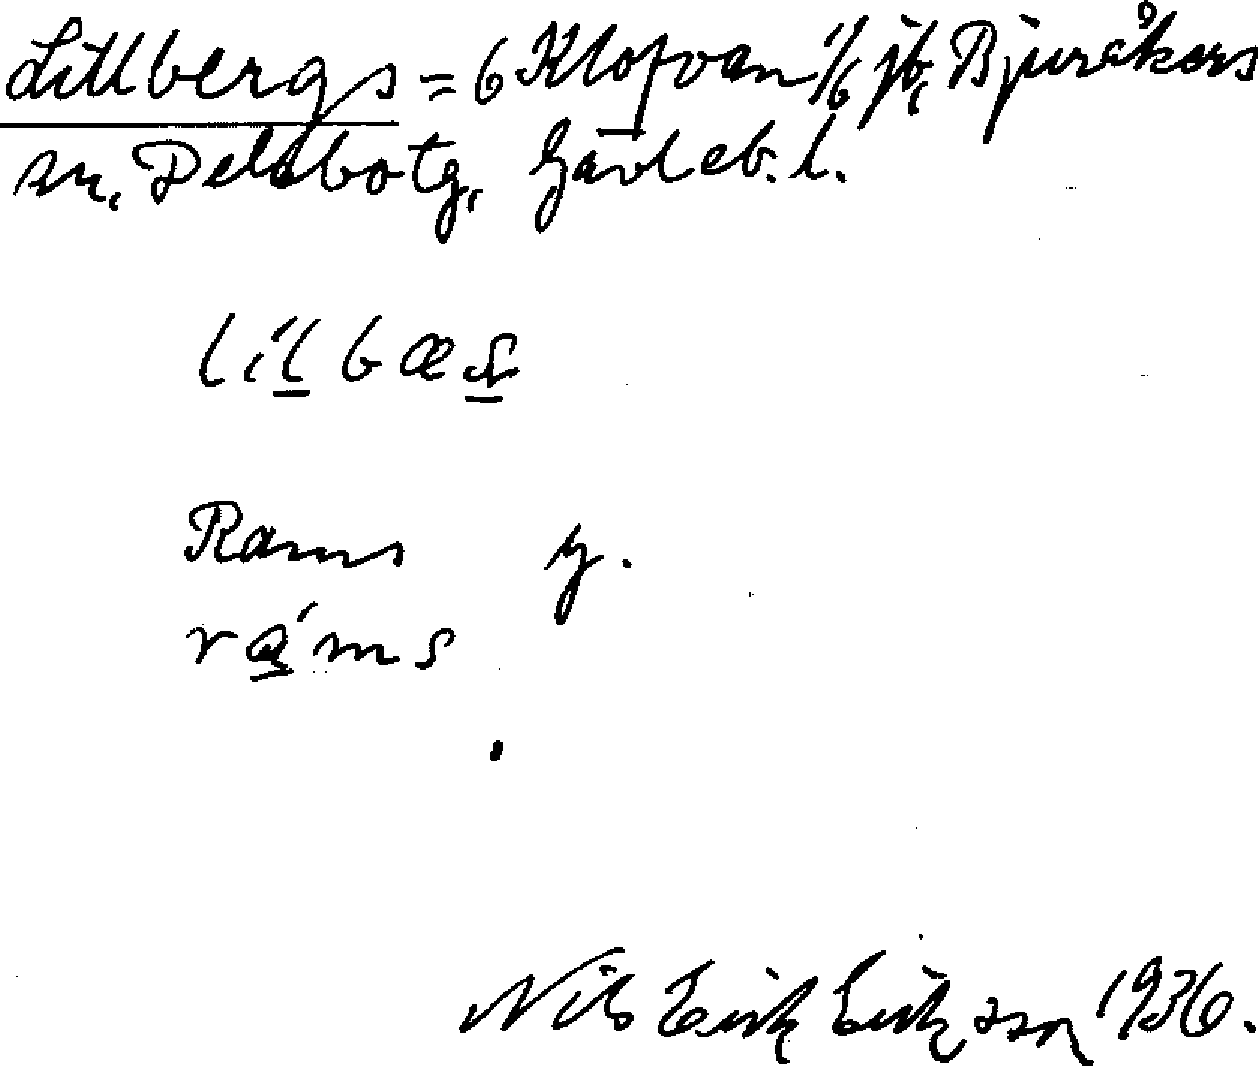 Lillbergs = 6 Klofvan 1/6 jb, Bjuråkers
sn, Delsbo tg, Gävleb. l.
lilbæs
Rams y.
ráms
Nils Erik Eriksson 1936.